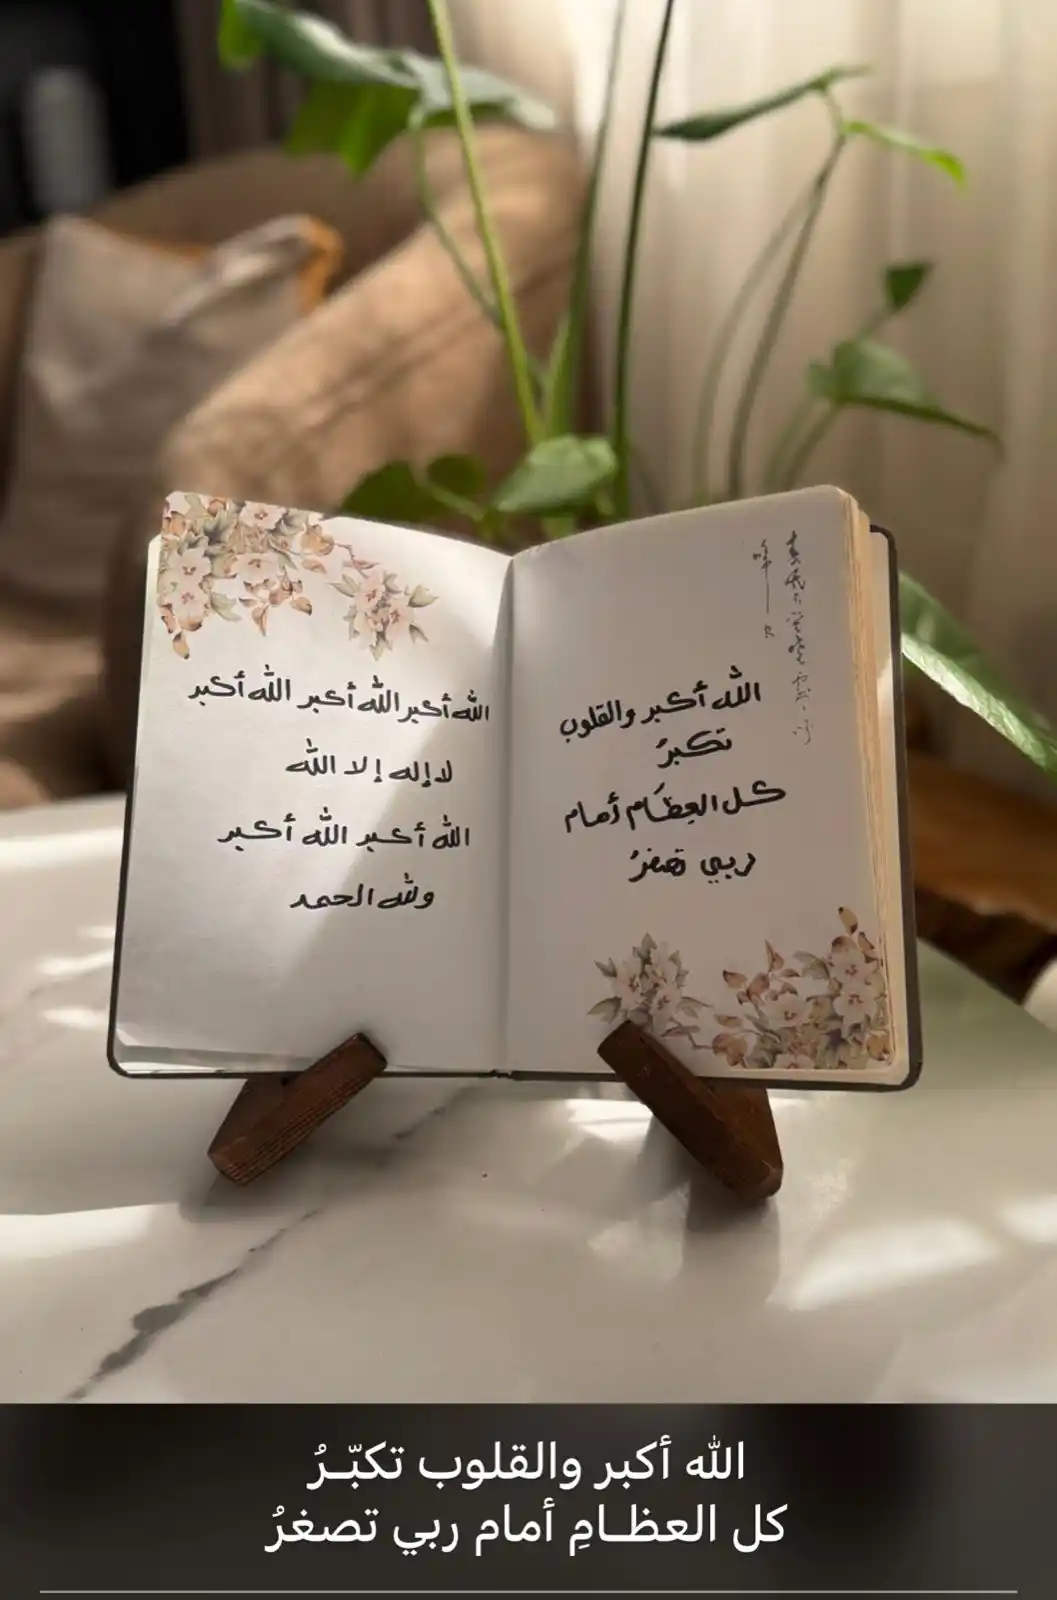 الله أكبر والقلوب
تكبرُ
كل العِظَام أمام
ربي تصغرُ
الله أكبر الله أكبر الله أكبر
لا إله إلا الله
الله أكبر الله أكبر
ولله الحمد
الله أكبر والقلوب تكبّــرُ
كل العظــامِ أمام ربي تصغرُ